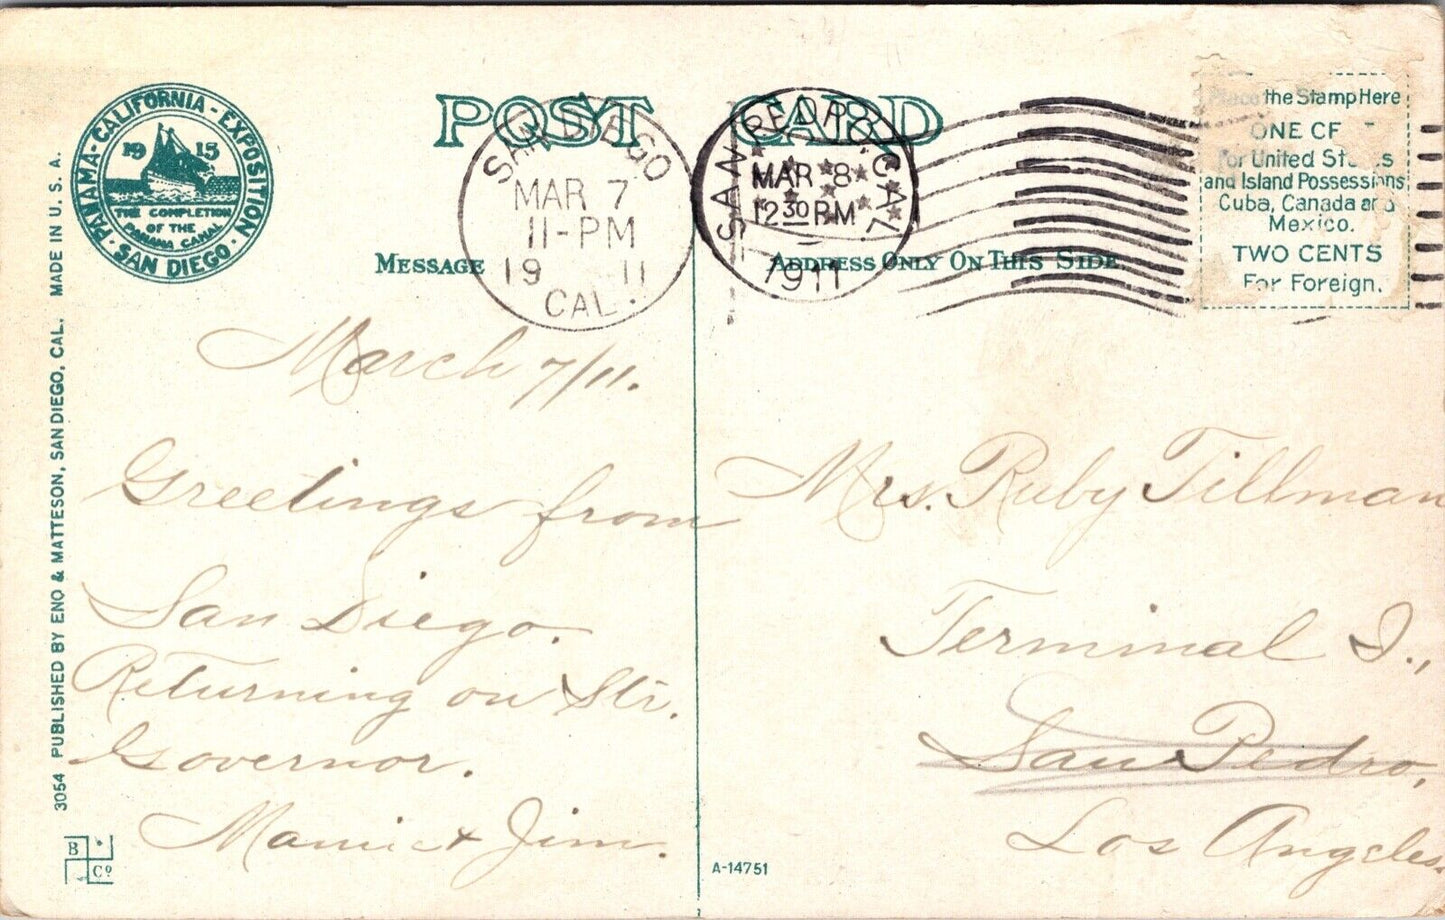 PANAMA-CALIFORNIA-EXPOSITION
1915
THE COMPLETION
OF THE
PANAMA CANAL
SAN DIEGO
POST CARD
SAN DIEGO
MAR 7
11-PM
19 11
CAL.
SAN PEDRO, CAL.
MAR 8
12 30 PM
1911
the Stamp Here
ONE
for United
and Island Possessions
Cuba, Canada and
Mexico.
TWO CENTS
For Foreign.
MESSAGE
ADDRESS ONLY ON THIS SIDE
March 7/11.
Greetings from
San Diego.
Returning on Str.
Governor.
Mamie & Jim.
Mrs. Ruby Tillman
Terminal I.,
San Pedro,
Los Angeles
3054 PUBLISHED BY ENO & MATTESON, SAN DIEGO, CAL. MADE IN U. S. A.
B
Co
A-14751